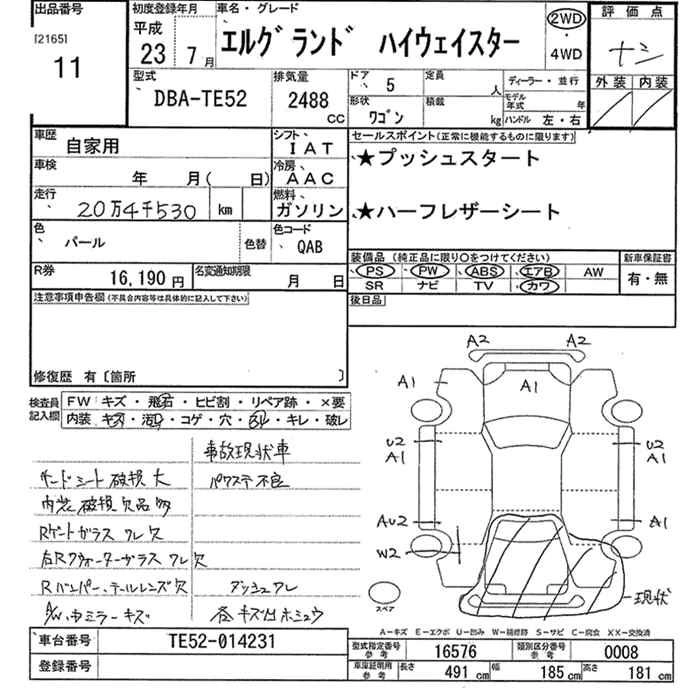 出品番号 初度登録年月 車名・グレード 評価点
[2165]
11
平成
23 7月
エルグランド ハイウェイスター
2WD
・
4WD
ナシ
外装 内装
型式 DBA-TE52
排気量 2488 CC
ドア 5
定員 人
ディーラー・並行
形状 ワゴン
積載 kg
モデル年式 年
ハンドル 左・右
車歴 自家用
シフト IAT
セールスポイント(正常に機能するものに限ります)
車検 年 月( 日)
冷房 AAC
★プッシュスタート
走行 20万4千530 km
燃料 ガソリン
★ハーフレザーシート
色 パール
色替
色コード QAB
装備品 (純正品に限り○をつけてください) 新車保証書
R券 16,190円
名変通知期限 月 日
PS PW ABS エアB AW
SR ナビ TV カワ
有・無
注意事項申告欄(不具合内容等は具体的に記入して下さい)
後日品
修復歴 有〔箇所 〕
検査員記入欄
FW キズ・飛石・ヒビ割・リペア跡・×要
内装 キズ・汚レ・コゲ・穴・カレ・キレ・破レ
事故現状車
サンドシート破損大 パワステ不良
内装破損欠品多
Rゲートガラスワレ欠
右Rクォーターガラスワレ欠
Rバンパー、テールレンズ欠 ダッシュワレ
A/W、ミラーキズ 各キズ凹ホショウ
A2 A2
A1 A1 A1
U2 U2
A1 A1
AU2 A1
W2
現状
スペア
A-キズ E-エクボ U-凹み W-補修跡 S-サビ C-腐食 XX-交換済
車台番号 TE52-014231
登録番号
型式指定参考 16576
類別区分番号参考 0008
車庫証明用参考 長さ 491 cm 幅 185 cm 高さ 181 cm